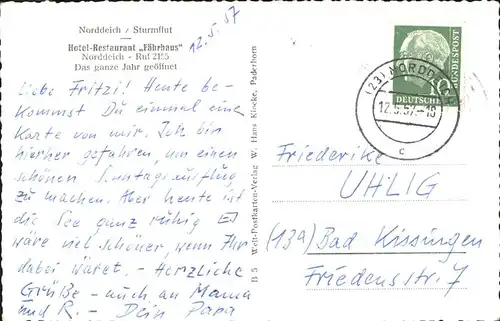 Norddeich / Sturmflut
Hotel-Restaurant „Fährhaus"
Norddeich - Ruf 2155
Das ganze Jahr geöffnet
12.5.57
Liebe Fritzi! Heute be-
kommst Du einmal eine
Karte von mir. Ich bin
hierher gefahren, um einen
schönen Sonntagsausflug
zu machen. Aber heute ist
die See ganz ruhig. Es
wäre viel schöner, wenn Ihr
dabei wäret. - Herzliche
Grüße - auch an Mama
und R. - Dein Papa
B 5 Welt-Postkarten-Verlag W. Hans Klocke, Paderborn
DEUTSCHE
BUNDESPOST
10
(23) NORDDEICH
12.5.57.-18
c
Friederike
UHLIG
(13a) Bad Kissingen
Friedensstr. 7